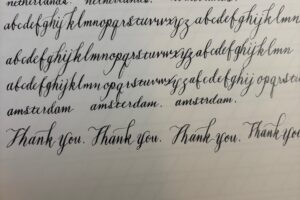 netherlands. netherlands.
abcdefghijklmnopqrstuvwxyz abcdefghijklmn
abcdefghijklmnopqrstuvwxyz abcdefghijklmn
abcdefghijklmnopqrstuvwxyz abcdefghij opqrstu
amsterdam amsterdam. amsterdam.
Thank you. Thank you. Thank you. Thank you